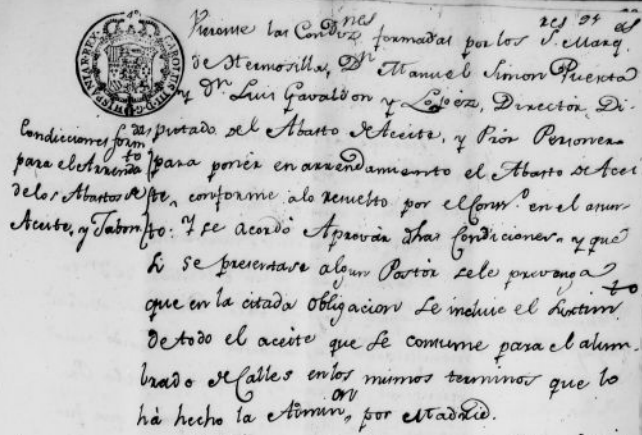 Vieronse las Condiz.nes formadas por los S.res D.n Marq.s
de Hermosilla, D.n Manuel Simon Puerta
y D.n Luis Gavaldon y Lopez, Director, Di-
putado del Abasto de Aceite, y Prôr Personero
para ponèr en arrendamiento el Abasto de Acei-
te, conforme alo resuelto por el Cons.o en el asun-
to: Y se acordò Aprovàr dhas Condiciones, y que
si se presentase algun Postòr sele prevenga
que en la citada obligacion se incluie el surtim.to
de todo el aceite que se consume para el alum-
brado de Calles en los mismos terminos que lo
hà hecho la Admin.on, por Madrid.
Condicciones form.das
para el Arrenda.to
de los Abastos de
Aceite, y Jabon
CAROLUS III D G HISPANIAR REX